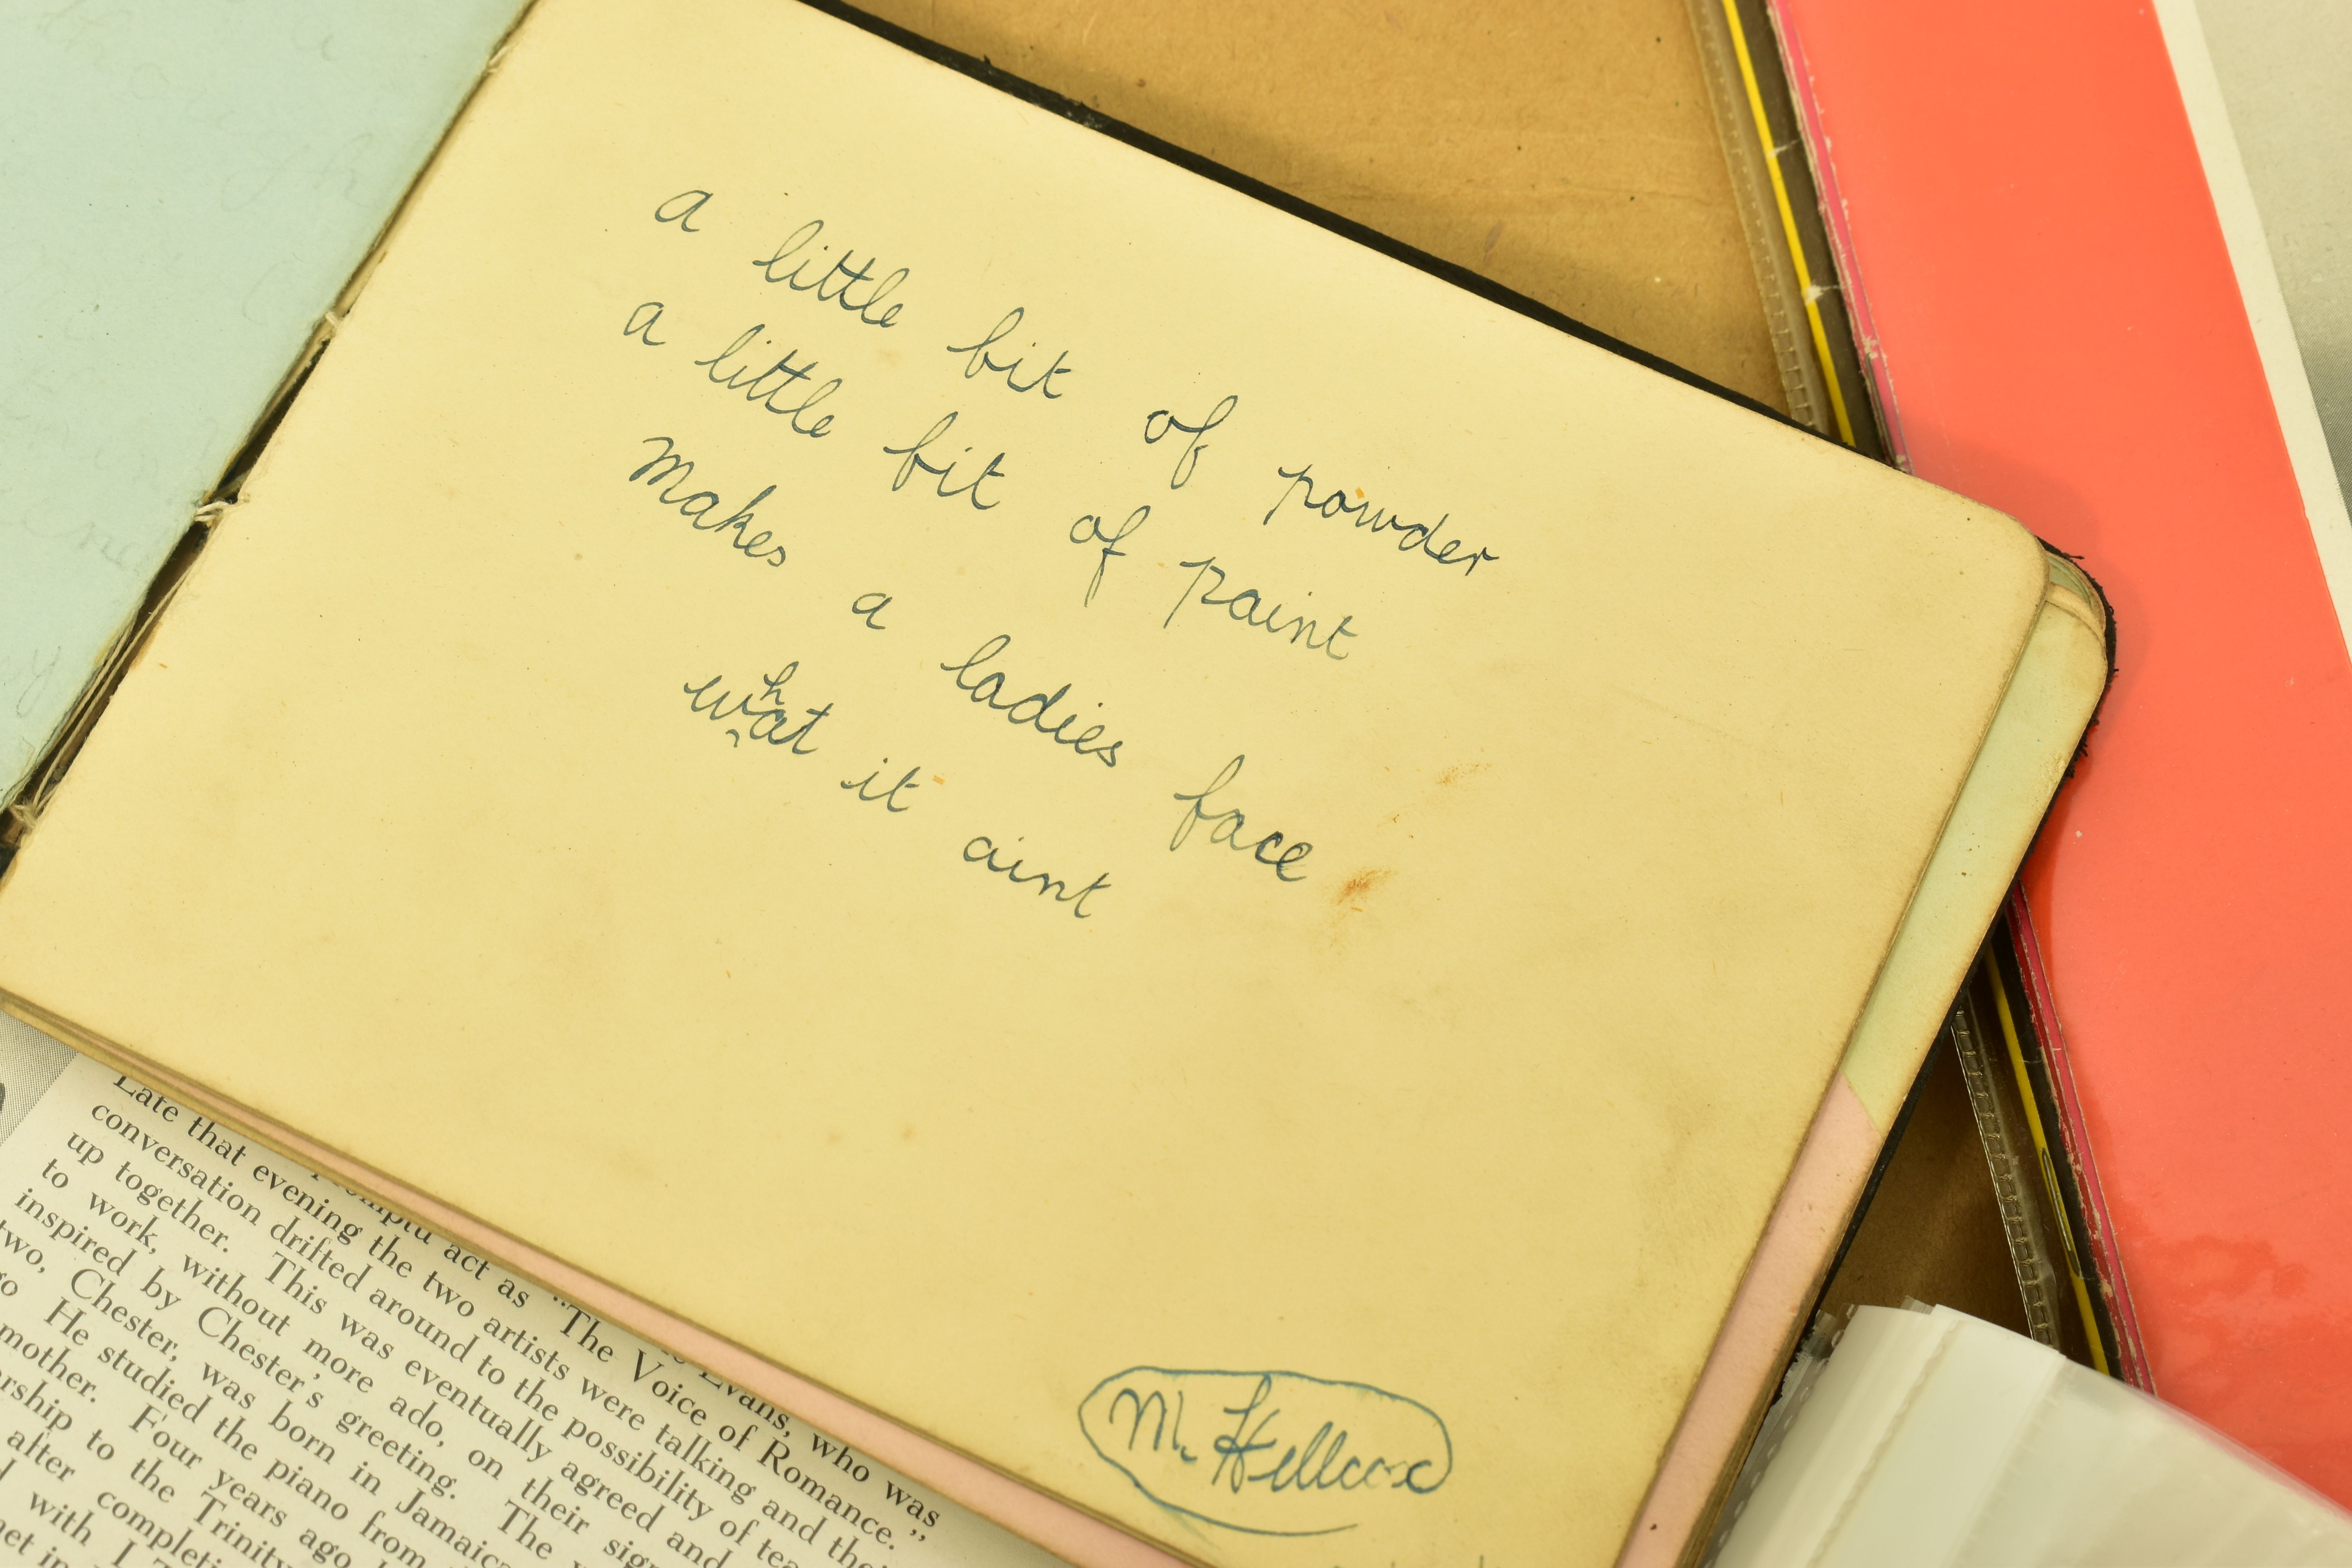 a little bit of powder
a little bit of paint
makes a ladies face
what it aint
M. Hellcox
act as "The Voice of Romance."
Evans, who was
Late that evening the two artists were talking and their
conversation drifted around to the possibility of
up together. This was eventually agreed and
to work, without more ado, on their
inspired by Chester's greeting. The
two, Chester, was born in Jamaica
He studied the piano from
mother. Four years ago
to the Trinity
after
with